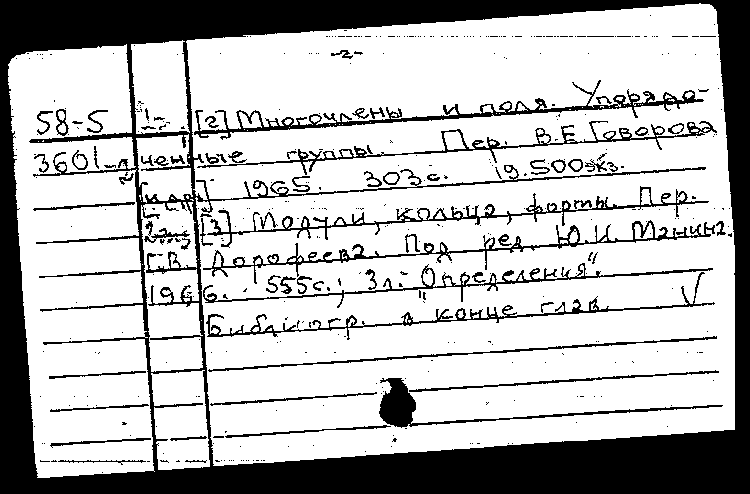 -2-
58-5 [2] Многочлены и поля. Упорядо-
3601-л ченные группы. Пер. В.Е. Говорова
[и др.] 1965. 303 с. 19.500 экз.
[3]. Модули, кольца, формы. Пер.
Г.В. Дорофеева. Под ред. Ю.И. Манина.
1966. 555с.; 3л. "Определения".
Библиогр. в конце глав. V